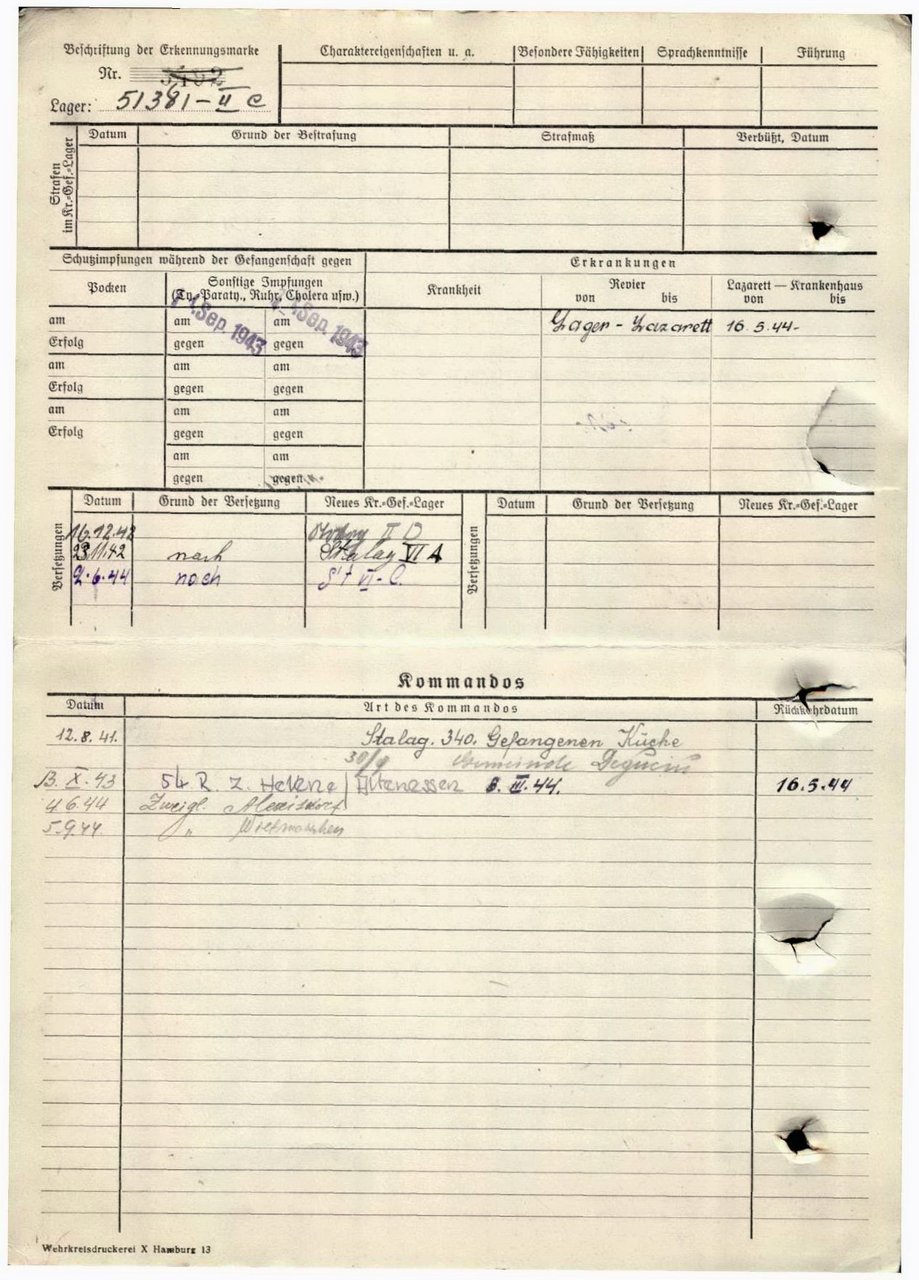 Beschriftung der Erkennungsmarke
Nr. 5492
Lager: 51381-II C
Charaktereigenschaften u. a.
Besondere Fähigkeiten
Sprachkenntnisse
Führung
Strafen im Kr.-Gef.-Lager
Datum
Grund der Bestrafung
Strafmaß
Verbüßt, Datum
Schutzimpfungen während der Gefangenschaft gegen
Erkrankungen
Pocken
Sonstige Impfungen
(Ty.-Paraty., Ruhr, Cholera usw.)
Krankheit
Revier
von bis
Lazarett — Krankenhaus
von bis
am am Sep. 1943 am Sep. 1943
Lager-Lazarett 16.5.44-
Erfolg gegen gegen
am am am
Erfolg gegen gegen
am am am
Erfolg gegen gegen
am am
gegen gegen
Versetzungen
Datum Grund der Versetzung Neues Kr.-Gef.-Lager
Versetzungen
Datum Grund der Versetzung Neues Kr.-Gef.-Lager
16.12.42 II D
23.11.42 nach Stalag VI A
2.6.44 nach St VI-C.
Kommandos
Datum Art des Kommandos Rückkehrdatum
12.8.41. Stalag. 340. Gefangenen Küche
Gemeinde
13.X.43 54 R. Z. Helene/Altenessen 8.III.44. 16.5.44
4.6.44 Zweigl. Alexisdorf
5.9.44 "
Wehrkreisdruckerei X Hamburg 13